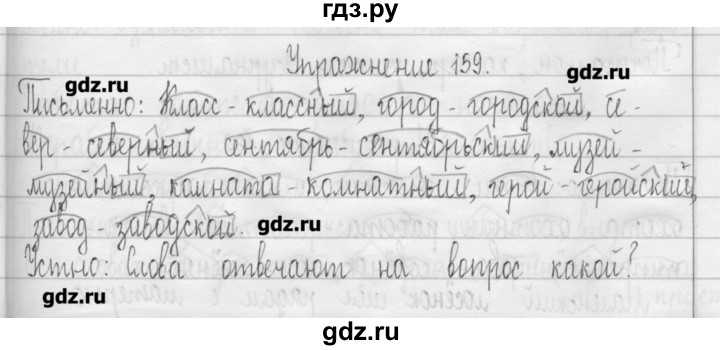 гдз.ру
Упражнение 159.
gdz.ru gdz.ru
Письменно: Класс - классный, город - городской, се-
вер - северный, сентябрь - сентябрьский, музей -
музейный, комната - комнатный, герой - геройский,
завод - заводской. gdz.ru
Устно: Слова отвечают на вопрос какой?
gdz.ru
gdz.ru